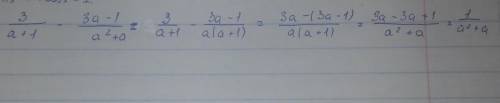 3/(a+1) - (3a-1)/(a²+a) = 3/(a+1) - (3a-1)/(a(a+1)) = (3a-(3a-1))/(a(a+1)) = (3a-3a+1)/(a²+a) = 1/(a²+a)